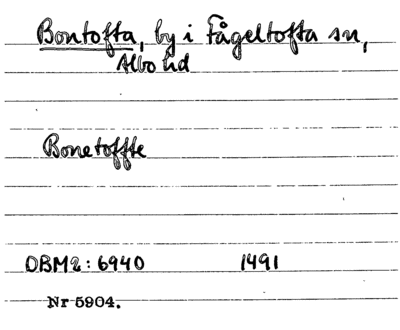 Bontofta, by i Fågeltofta sn,
Albo hd
Bonetoffte
DBM2: 6940 1491
Nr 5904.